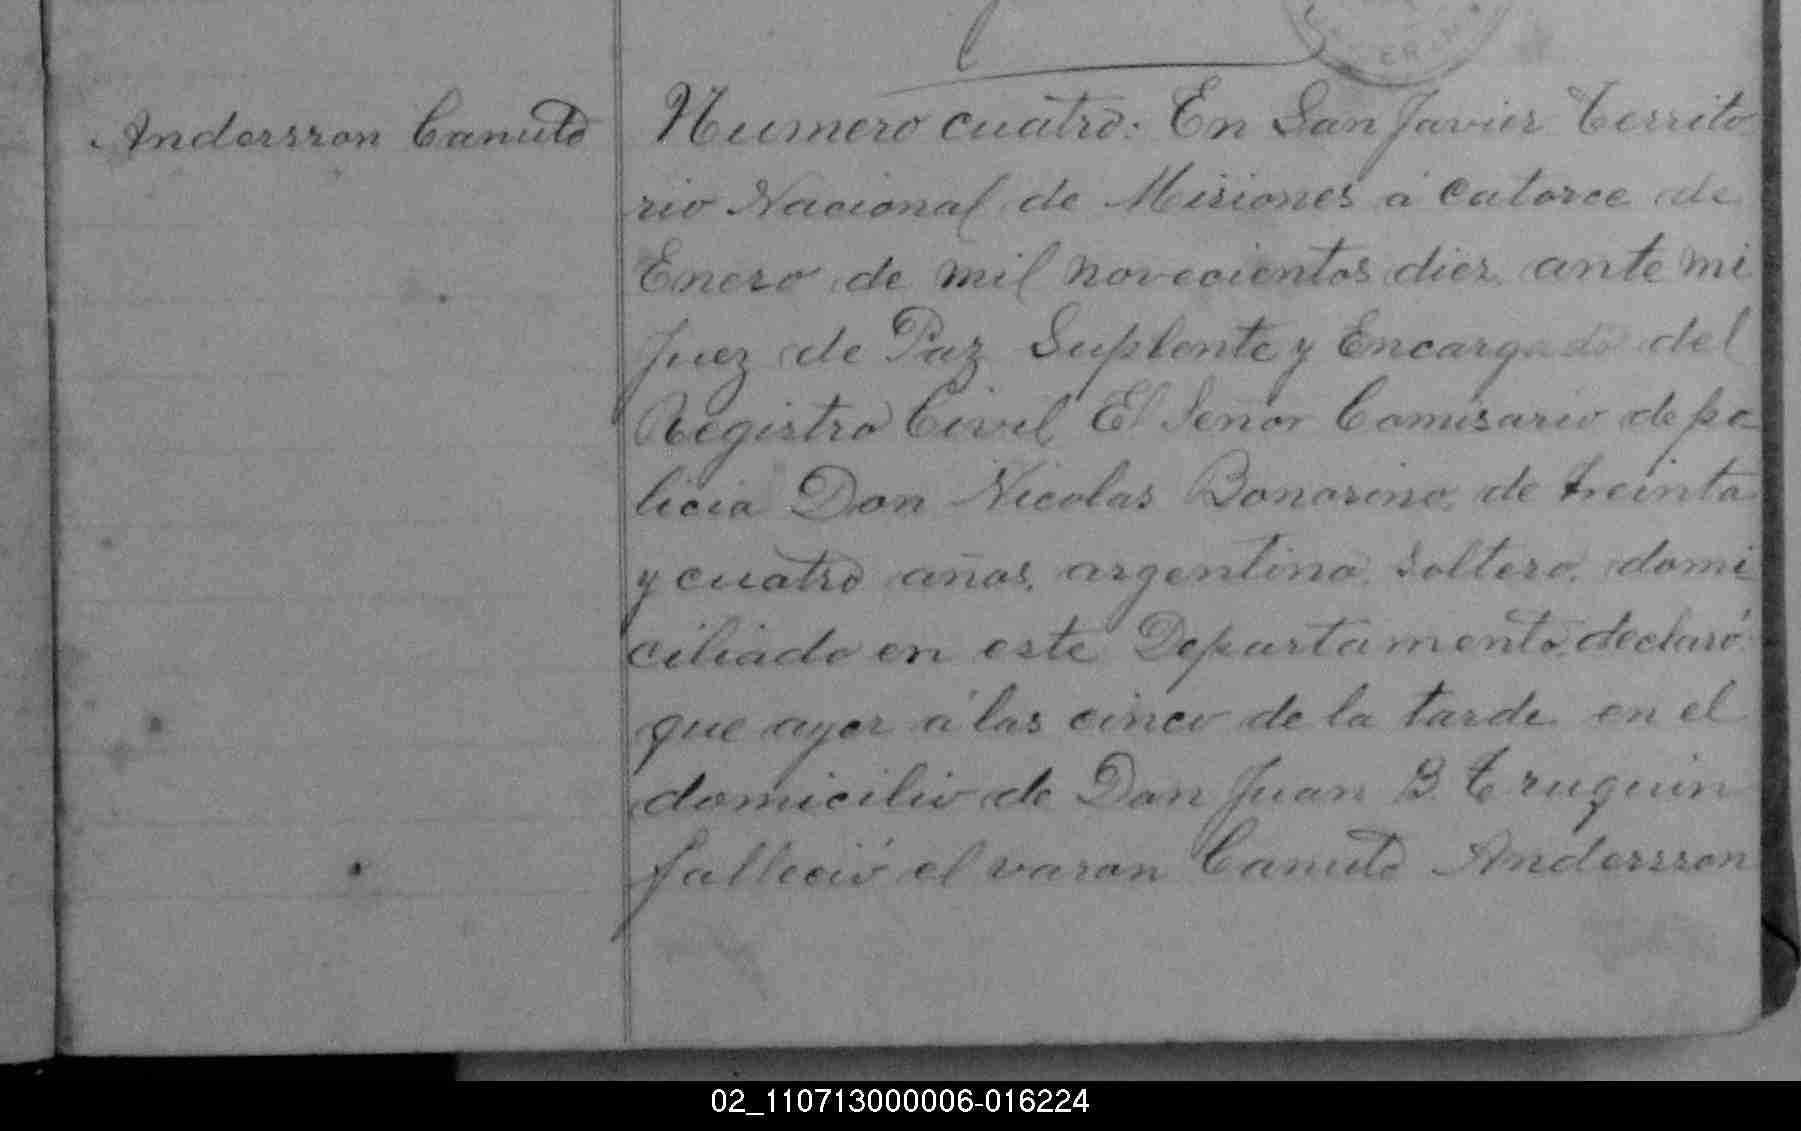 Andersson Canuto
Numero cuatro: En San Javier Territo
rio Nacional de Misiones á catorce de
Enero de mil novecientos diez ante mi
Juez de Paz Suplente y Encargado del
Registro Civil, El Señor Comisario de po
licia Don Nicolas Bonorino, de treinta
y cuatro años, argentino, soltero, domi
ciliado en este Departamento, declaró:
que ayer á las cinco de la tarde en el
domicilio de Don Juan B. Truquin
falleció el varon Canuto Andersson
02_110713000006-016224